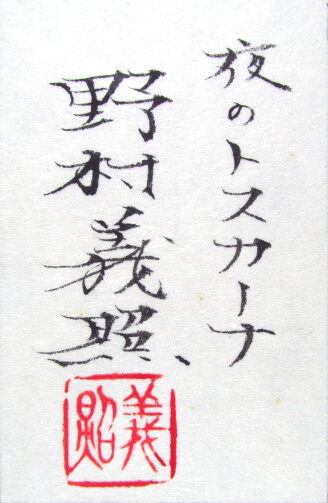 夜のトスカーナ
野村義照
義照